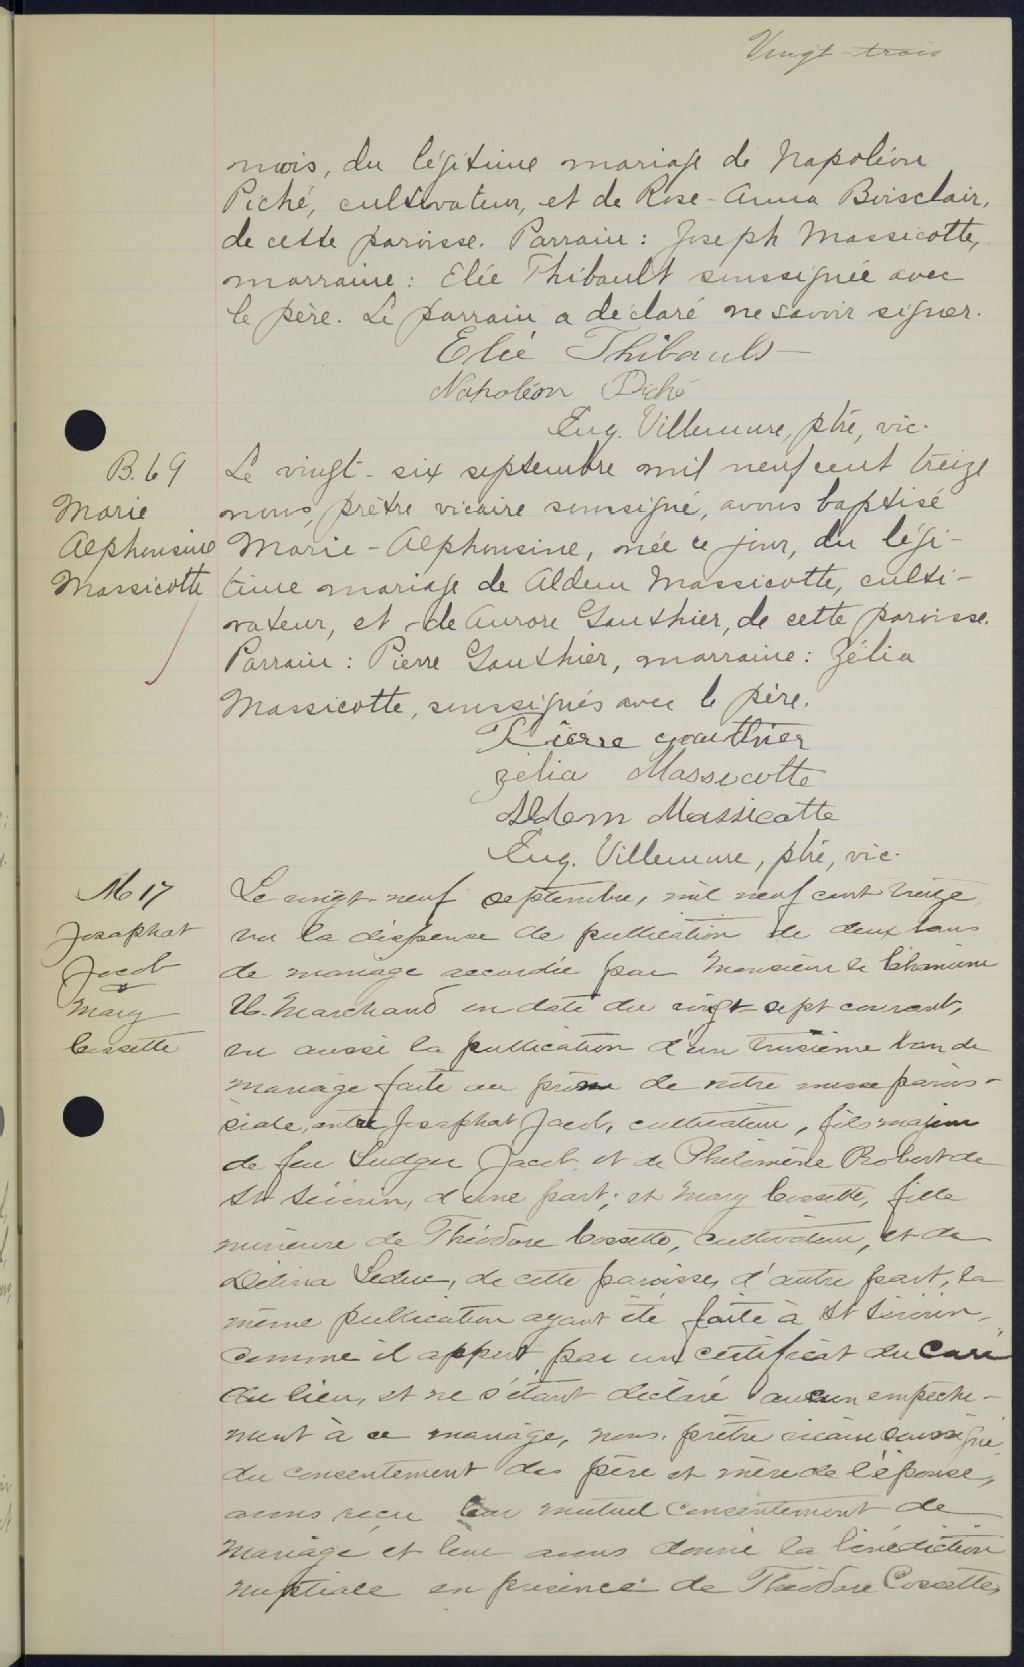 Vingt-trois
mois, du légitime mariage de Napoléon
Piché, cultivateur, et de Rose-Anna Boisclair,
de cette paroisse. Parrain : Joseph Massicotte,
marraine : Elée Thibault soussignée avec
le père. Le parrain a déclaré ne savoir signer.
Elée Thibault
Napoléon Piché
Eug. Villemure, ptre, vic.
B. 69
Marie
Alphonsine
Massicotte
Le vingt-six septembre mil neuf cent treize
nous, prêtre vicaire soussigné, avons baptisé
Marie-Alphonsine, née ce jour, du légi-
time mariage de Aldem Massicotte, culti-
vateur, et de Aurore Gauthier, de cette paroisse.
Parrain : Pierre Gauthier, marraine : Zélia
Massicotte, soussignés avec le père.
Pierre gauthier
zélia Massicotte
Aldem Massicotte
Eug. Villemure, ptre, vic.
M 17
Josaphat
Jacob
&
Mary
Cossette
Le vingt-neuf septembre, mil neuf cent treize,
vu la dispense de publication de deux bans
de mariage accordée par Monsieur le Chanoine
U. Marchand en date du vingt-sept courant,
vu aussi la publication d'un troisième ban de
mariage faite au prône de notre messe parois-
siale, entre Josaphat Jacob, cultivateur, fils majeur
de feu Ludger Jacob et de Philomène Robert de
St Séverin, d'une part; et Mary Cossette, fille
mineure de Théodore Cossette, cultivateur, et de
Délina Leduc, de cette paroisse, d'autre part, la
même publication ayant été faite à St Séverin,
comme il appert par un certificat du Curé
du lieu, et ne s'étant déclaré aucun empêche-
ment à ce mariage, nous, prêtre vicaire soussigné,
du consentement des père et mère de l'épouse,
avons reçu leur mutuel consentement de
mariage et leur avons donné la bénédiction
nuptiale en présence de Théodore Cossette,